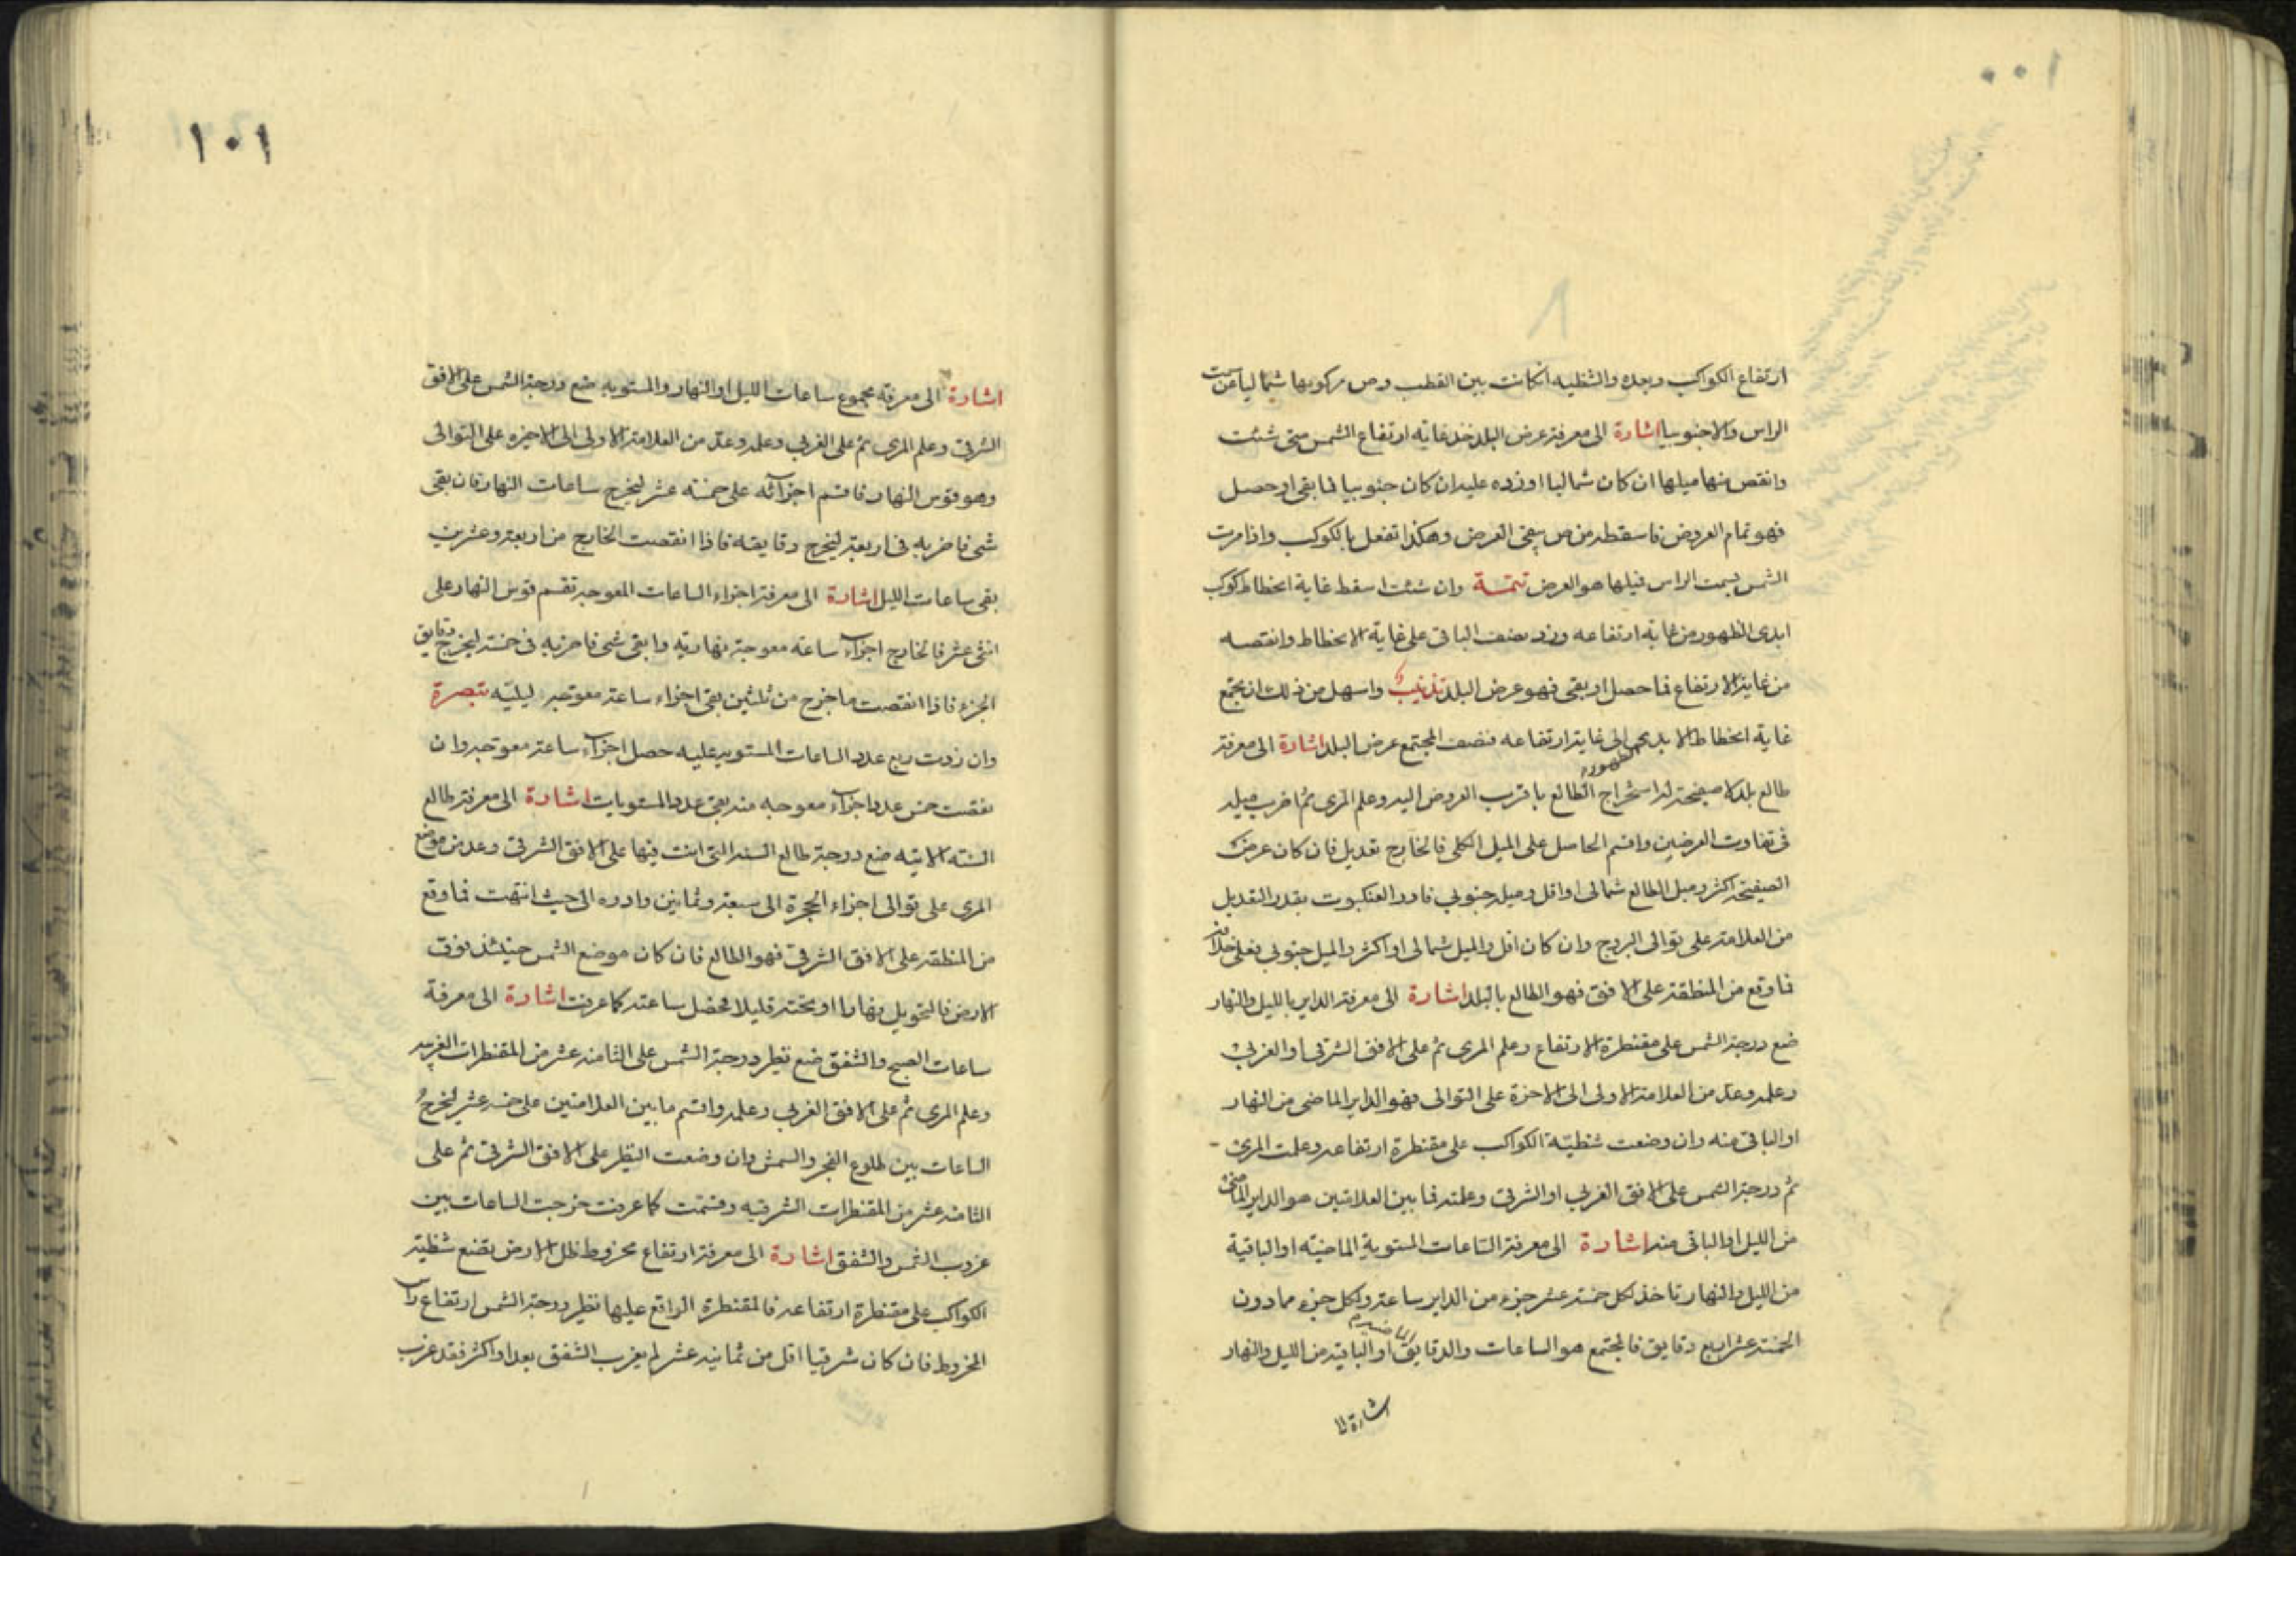 ١٠٠
ارتفاع الكواكب وبعده والشظيه انكانت بين القطب وص مركوبها شماليا عن سمت
الراس والا جنوبيا اشارة الى معرفة عرض البلد خذ غاية ارتفاع الشمس متى شئت
وانقص منها ميلها ان كان شماليا او زده عليه ان كان جنوبيا فما بقى او حصل
فهو تمام العروض فاسقطه من ص يبقى العرض وهكذا تفعل بالكوكب واذا مرت
الشمس بسمت الراس فميلها هو العرض تتمة وان شئت اسقط غاية انحطاط كوكب
ابدى الظهور من غاية ارتفاعه وزد نصف الباقى على غاية الانحطاط وانقصه
من غاية الارتفاع فما حصل او بقى فهو عرض البلد تذنيب واسهل من ذلك ان تجمع
غاية انحطاط الابدى الظهور الى غاية ارتفاعه فنصف المجتمع عرض البلد اشارة الى معرفة
طالع بلد لا صفيحة له استخراج الطالع باقرب العروض اليه وعلم المرى ثم اضرب ميله
فى تفاوت العرضين واقسم الحاصل على الميل الكلى فالخارج تعديل فان كان عرض
الصفيحة اكثر وميل الطالع شمالى او اقل وميله جنوبي فادر العنكبوت بقدر التعديل
من العلامة على توالى البروج وان كان اقل والميل شمالى او اكثر والميل جنوبي فعلى خلافه
فما وقع من المنطقة على الافق فهو الطالع بالبلد اشارة الى معرفة الداير بالليل والنهار
ضع درجة الشمس على مقنطرة الارتفاع وعلم المرى ثم على الافق الشرقى او الغربي
وعلمه وعد من العلامة الاولى الى الاخرة على التوالى فهو الداير الماضى من النهار
او الباقى منه وان وضعت شظية الكواكب على مقنطرة ارتفاعه وعلمت المرى
ثم درجة الشمس على الافق الغربي او الشرقى وعلمته فما بين العلامتين هو الداير الماضى
من الليل او الباقى منه اشارة الى معرفة الساعات المستوية الماضية او الباقية
من الليل والنهار تاخذ لكل خمسة عشر جزء من الداير ساعة ولكل جزء مما دون
الخمسة عشر اربع دقايق فالمجتمع هو الساعات والدقايق الماضية او الباقية من الليل والنهار
اشارة الى
١٠١
اشارة الى معرفة مجموع ساعات الليل او النهار والمستويه ضع درجة الشمس على الافق
الشرقى وعلم المرى ثم على الغربي وعلمه وعد من العلامة الاولى الى الاخيره على التوالى
وهو قوس النهار فاقسم اجزائه على خمسة عشر ليخرج ساعات النهار فان بقى
شى فاضربه فى اربعة ليخرج دقايقه فاذا انقصت الخارج من اربعة وعشرين
بقى ساعات الليل اشارة الى معرفة اجزاء الساعات المعوجة تقسم قوس النهار على
اثنى عشر فالخارج اجزاء ساعة معوجة نهارية وابقى شى فاضربه فى خمسة ليخرج دقايق
الجزء فاذا انقصت ما خرج من ثلثين بقى اجزاء ساعة معوجة ليليه تبصرة
وان زدت ربع عدد الساعات المستويه عليه حصل اجزاء ساعة معوجة وان
نقصت خمس عدد اجزاء معوجه منه بقى عدد المستويات اشارة الى معرفة طالع
السنه الاتيه ضع درجة طالع السنة التى انت فيها على الافق الشرقى وعد من موضع
المرى على توالى اجزاء الحجرة الى سبعة وثمانين وادره الى حيث انتهت فما وقع
من المنطقة على الافق الشرقى فهو الطالع فان كان موضع الشمس حينئذ فوق
الارض فالتحويل نهارا او تحته قليلا فحصل ساعته كما عرفت اشارة الى معرفة
ساعات الصبح والشفق ضع نظير درجة الشمس على الثامنة عشر من المقنطرات الغربيه
وعلم المرى ثم على الافق الغربي وعلمه واقسم ما بين العلامتين على خمسة عشر ليخرج
الساعات بين طلوع الفجر والشمس وان وضعت النظير على الافق الشرقى ثم على
الثامنة عشر من المقنطرات الشرقيه وقسمت كما عرفت خرجت الساعات بين
غروب الشمس والشفق اشارة الى معرفة ارتفاع مخروط ظل الارض تضع شظية
الكواكب على مقنطرة ارتفاعه فالمقنطرة الواقع عليها نظير درجة الشمس ارتفاع راس
المخروط فان كان شرقيا اقل من ثمانية عشر لم يغرب الشفق بعد او اكثر فقد غرب